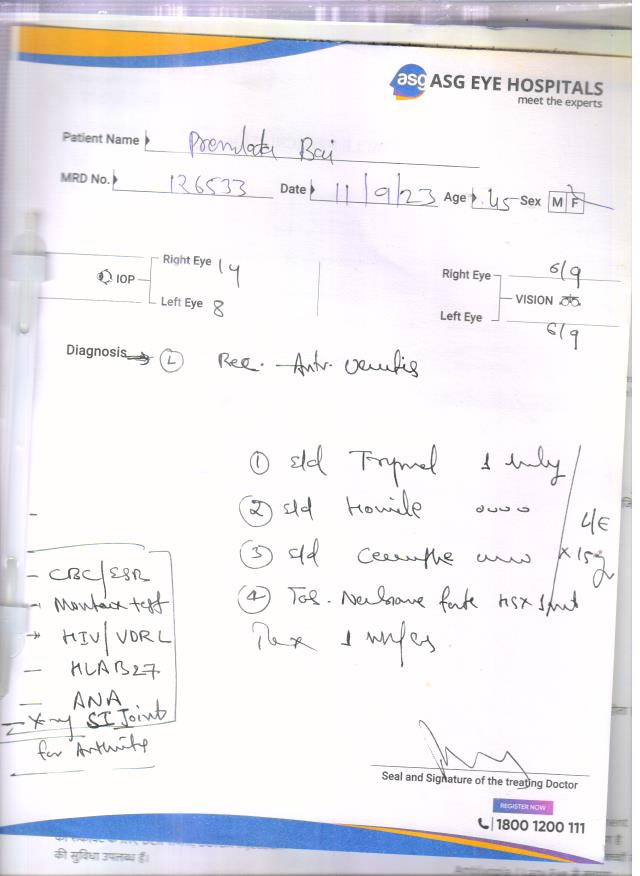 asg ASG EYE HOSPITALS
meet the experts
Patient Name Premlata Bai
MRD No. 126533 Date 11/9/23 Age 45 Sex M F
IOP Right Eye 14
Left Eye 8
Right Eye 6/9
VISION
Left Eye 6/9
Diagnosis L Rec. Antr. Uveitis
1 e/d
2 e/d Homide
3 e/d
x 15
L/E
4 Tab. forte HS x 1
1
- CBC/ESR
- Montoux test
- HIV/VDRL
- HLAB27
- ANA
- X-ray SI Joint
for Arthritis
Seal and Signature of the treating Doctor
REGISTER NOW
1800 1200 111
की सुविधा उपलब्ध है।